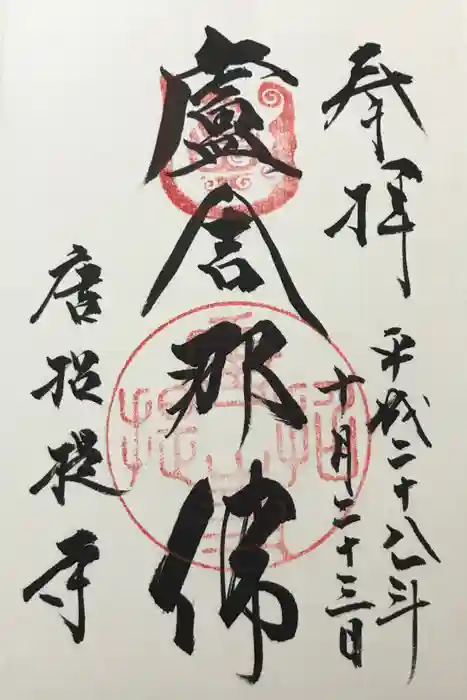 奉拝
平成二十八年
十月二十三日
盧舎那佛
唐招提寺